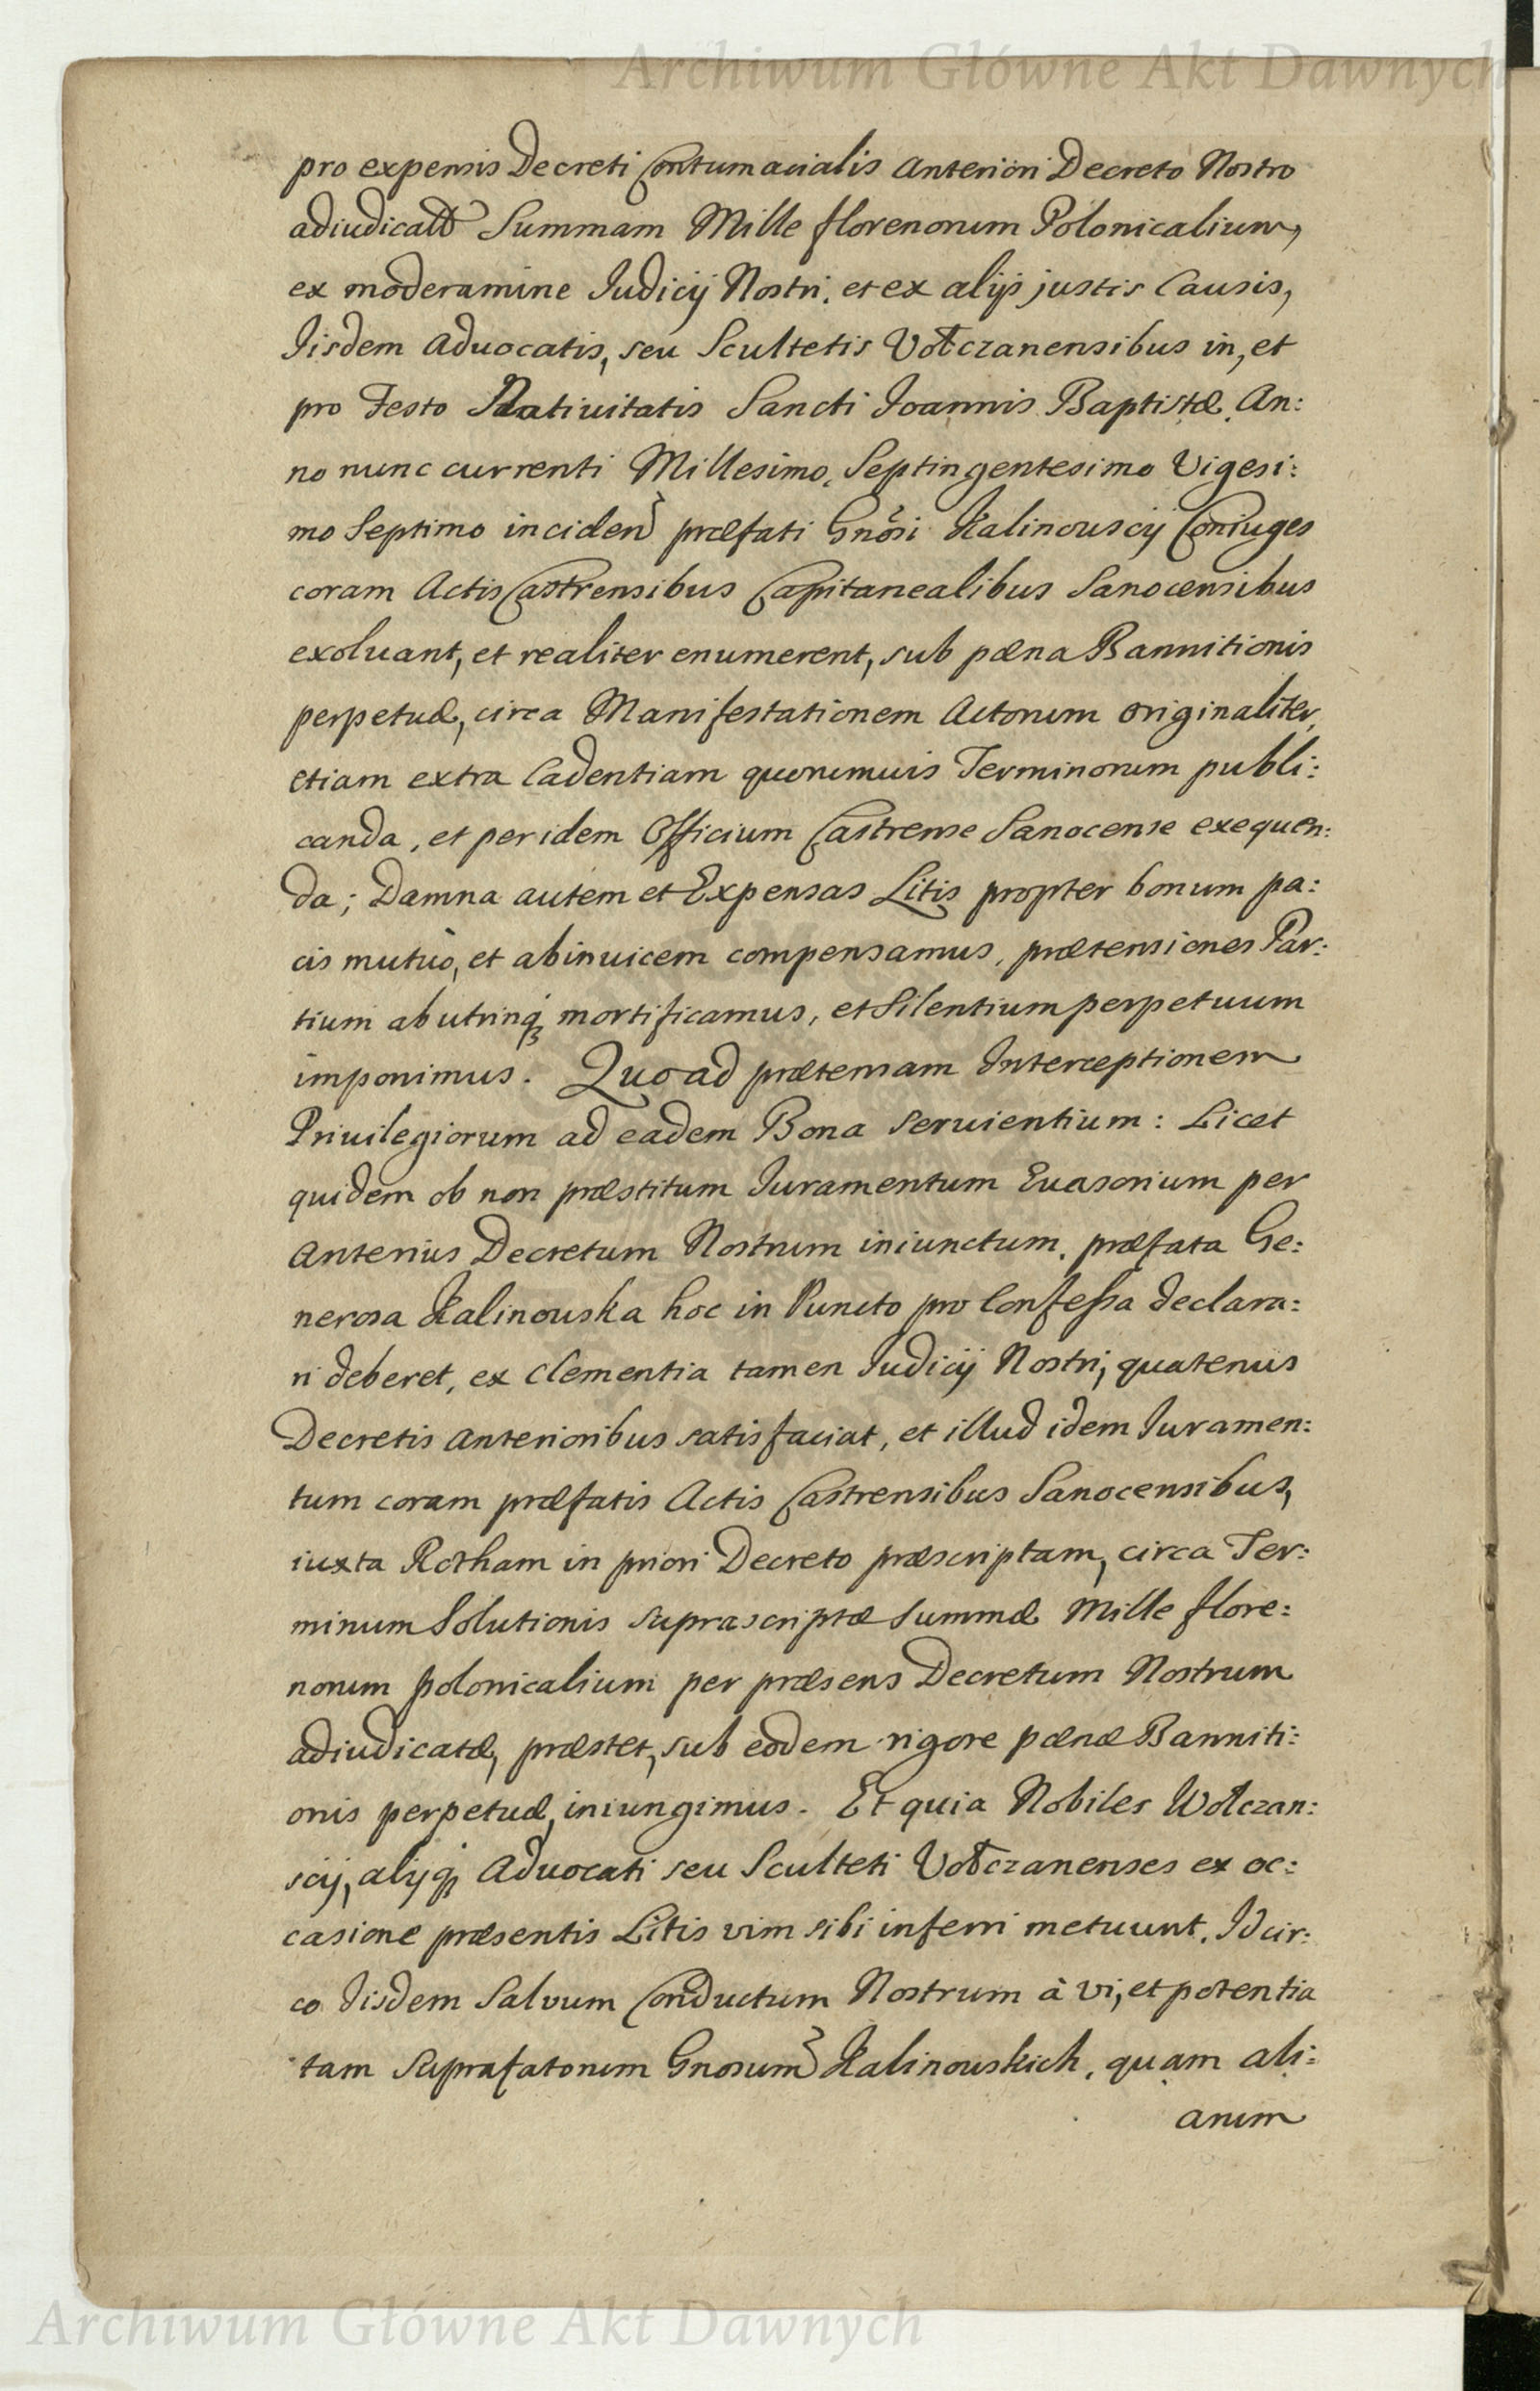 Archiwum Główne Akt Dawnych
pro expensis Decreti Contumacialis anteriori Decreto Nostro
adiudicatt Summam Mille florenorum Polonicalium,
ex moderamine Iudicij Nostri, et ex alijs justis Causis,
Iisdem Aduocatis, seu Scultetis Vołczanensibus in, et
pro Festo Natiuitatis Sancti Joannis Baptistæ, An:
no nunc currenti Millesimo, Septingentesimo Vigesi:
mo Septimo inciden præfati Gnosi Kalinouscij Coniuges
coram Actis Castrensibus Capitanealibus Sanocensibus
exoluant, et realiter enumerent, sub pæna Bannitionis
perpetuæ, circa Manifestationem Actorum originaliter,
etiam extra Cadentiam quorumuis Terminorum publi:
canda, et per idem Officium Castrense Sanocense exequen:
da; Damna autem et Expensas Litis propter bonum pa:
cis mutuò, et abinuicem compensamus, prætensiones Par:
tium ab utrinq; mortificamus, et Silentium perpetuum
imponimus. Quoad prætensam Interceptionem
Priuilegiorum ad eadem Bona seruientium: Licet
quidem ob non præstitum Iuramentum Euasorium per
anterius Decretum Nostrum iniunctum, præfata Ge:
nerosa Kalinouska hoc in Puncto pro Confessa declara:
ri deberet, ex Clementia tamen Iudicij Nostri, quatenus
Decretis anterioribus satisfaciat, et illud idem Iuramen:
tum coram præfatis Actis Castrensibus Sanocensibus,
iuxta Rotham in priori Decreto præscriptam, circa Ter:
minum Solutionis suprascriptæ Summæ Mille flore:
norum polonicalium per præsens Decretum Nostrum
adiudicatæ, præstet, sub eodem rigore pænæ Banniti:
onis perpetuæ, iniungimus. Et quia Nobiles Wołczan:
scij, alijq; Aduocati seu Sculteti Vołczanenses ex oc:
casione præsentis Litis vim sibi inferri metuunt, Idcir:
co Iisdem Saluum Conductum Nostrum à vi, et potentia
tam suprafatorum Gnorum Kalinouskich, quam ali:
arum
Archiwum Główne Akt Dawnych